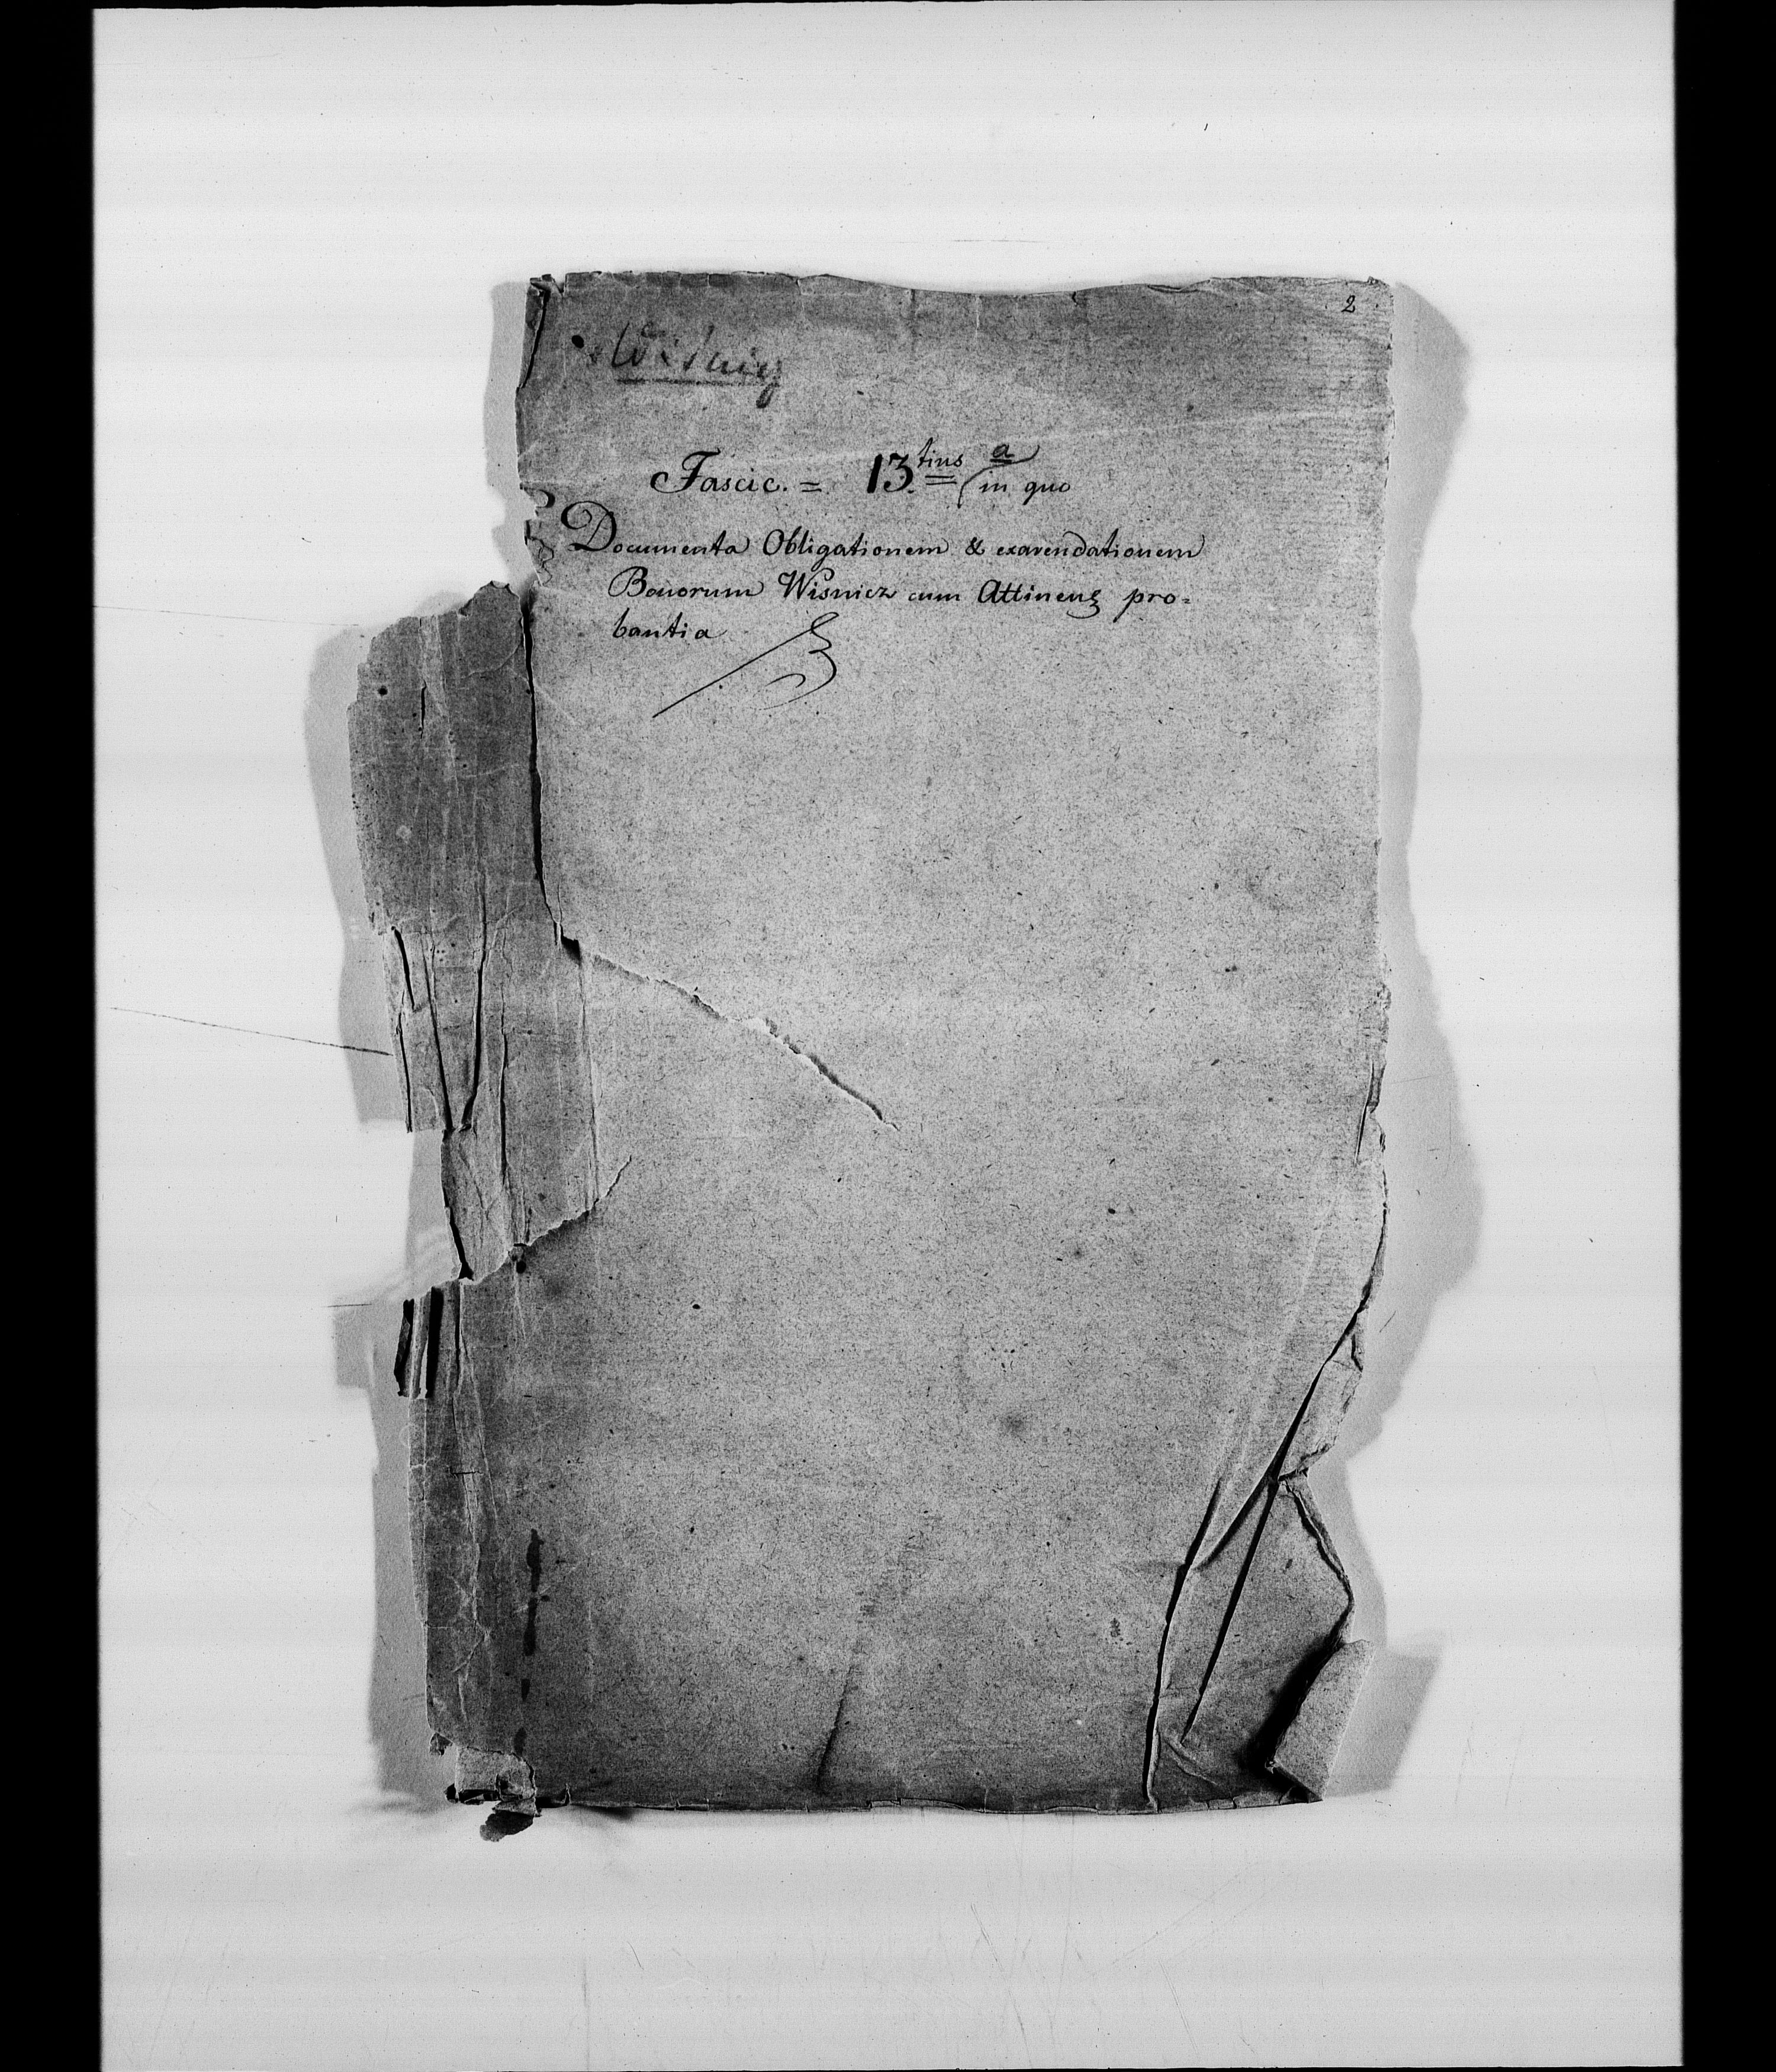 2
Wiśnicz
Fascic. = 13.tius a
in quo
Documenta Obligationem & exarendationem
Bonorum Wisnicz cum Attinens pro=
bantia